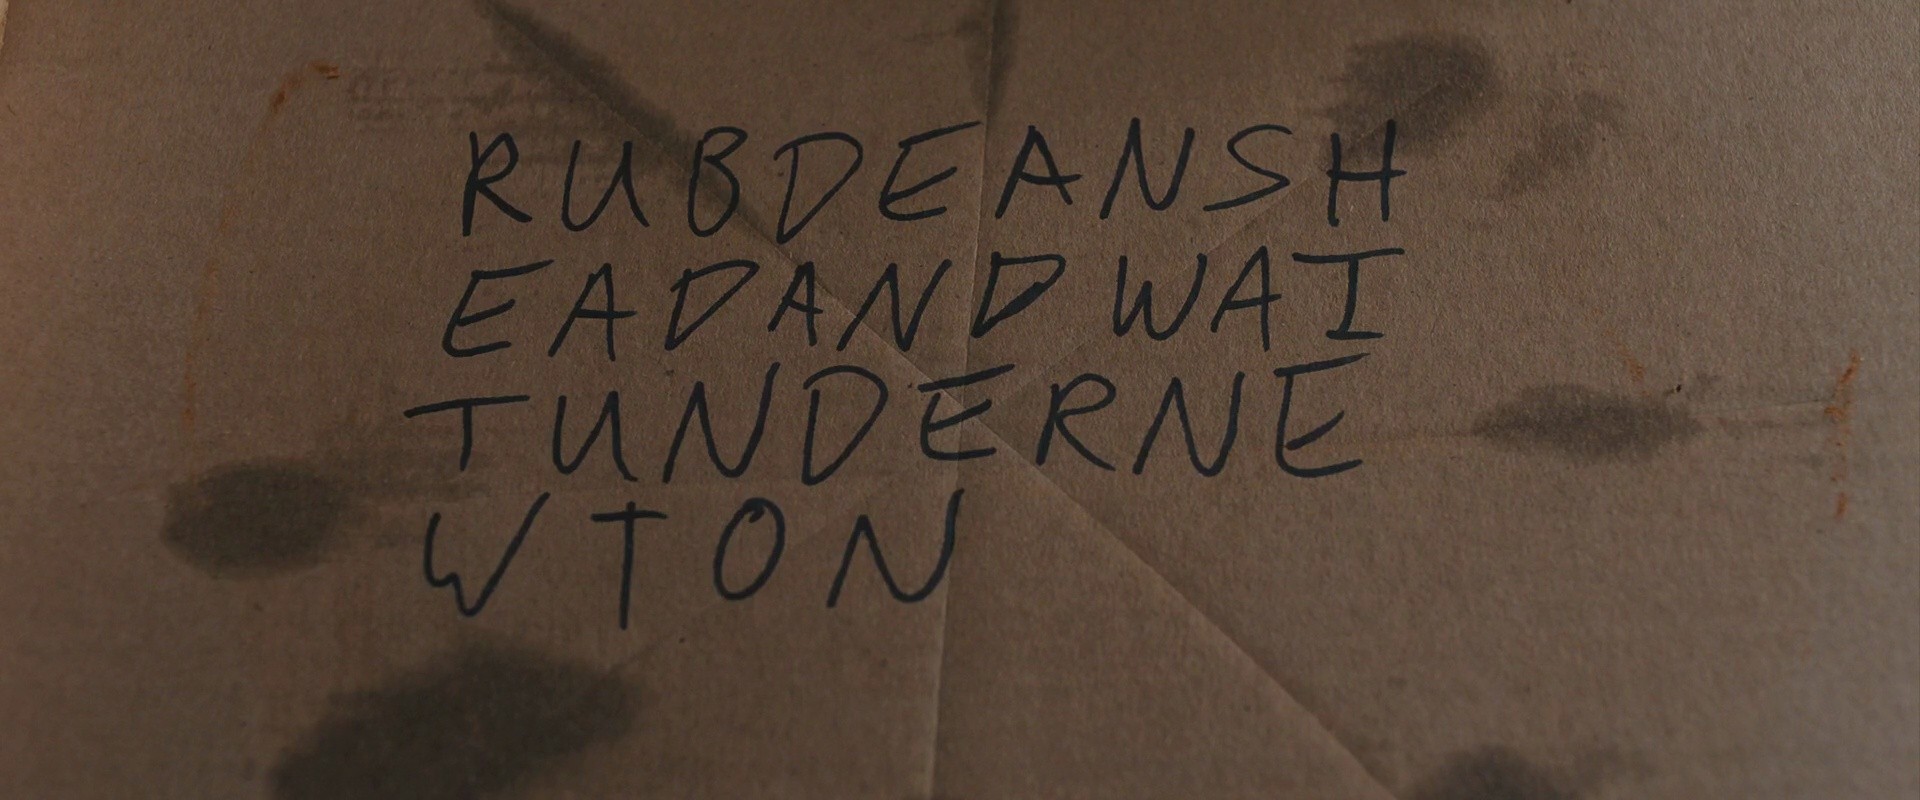 RUBDEANSH
EADANDWAI
TUNDERNE
WTON